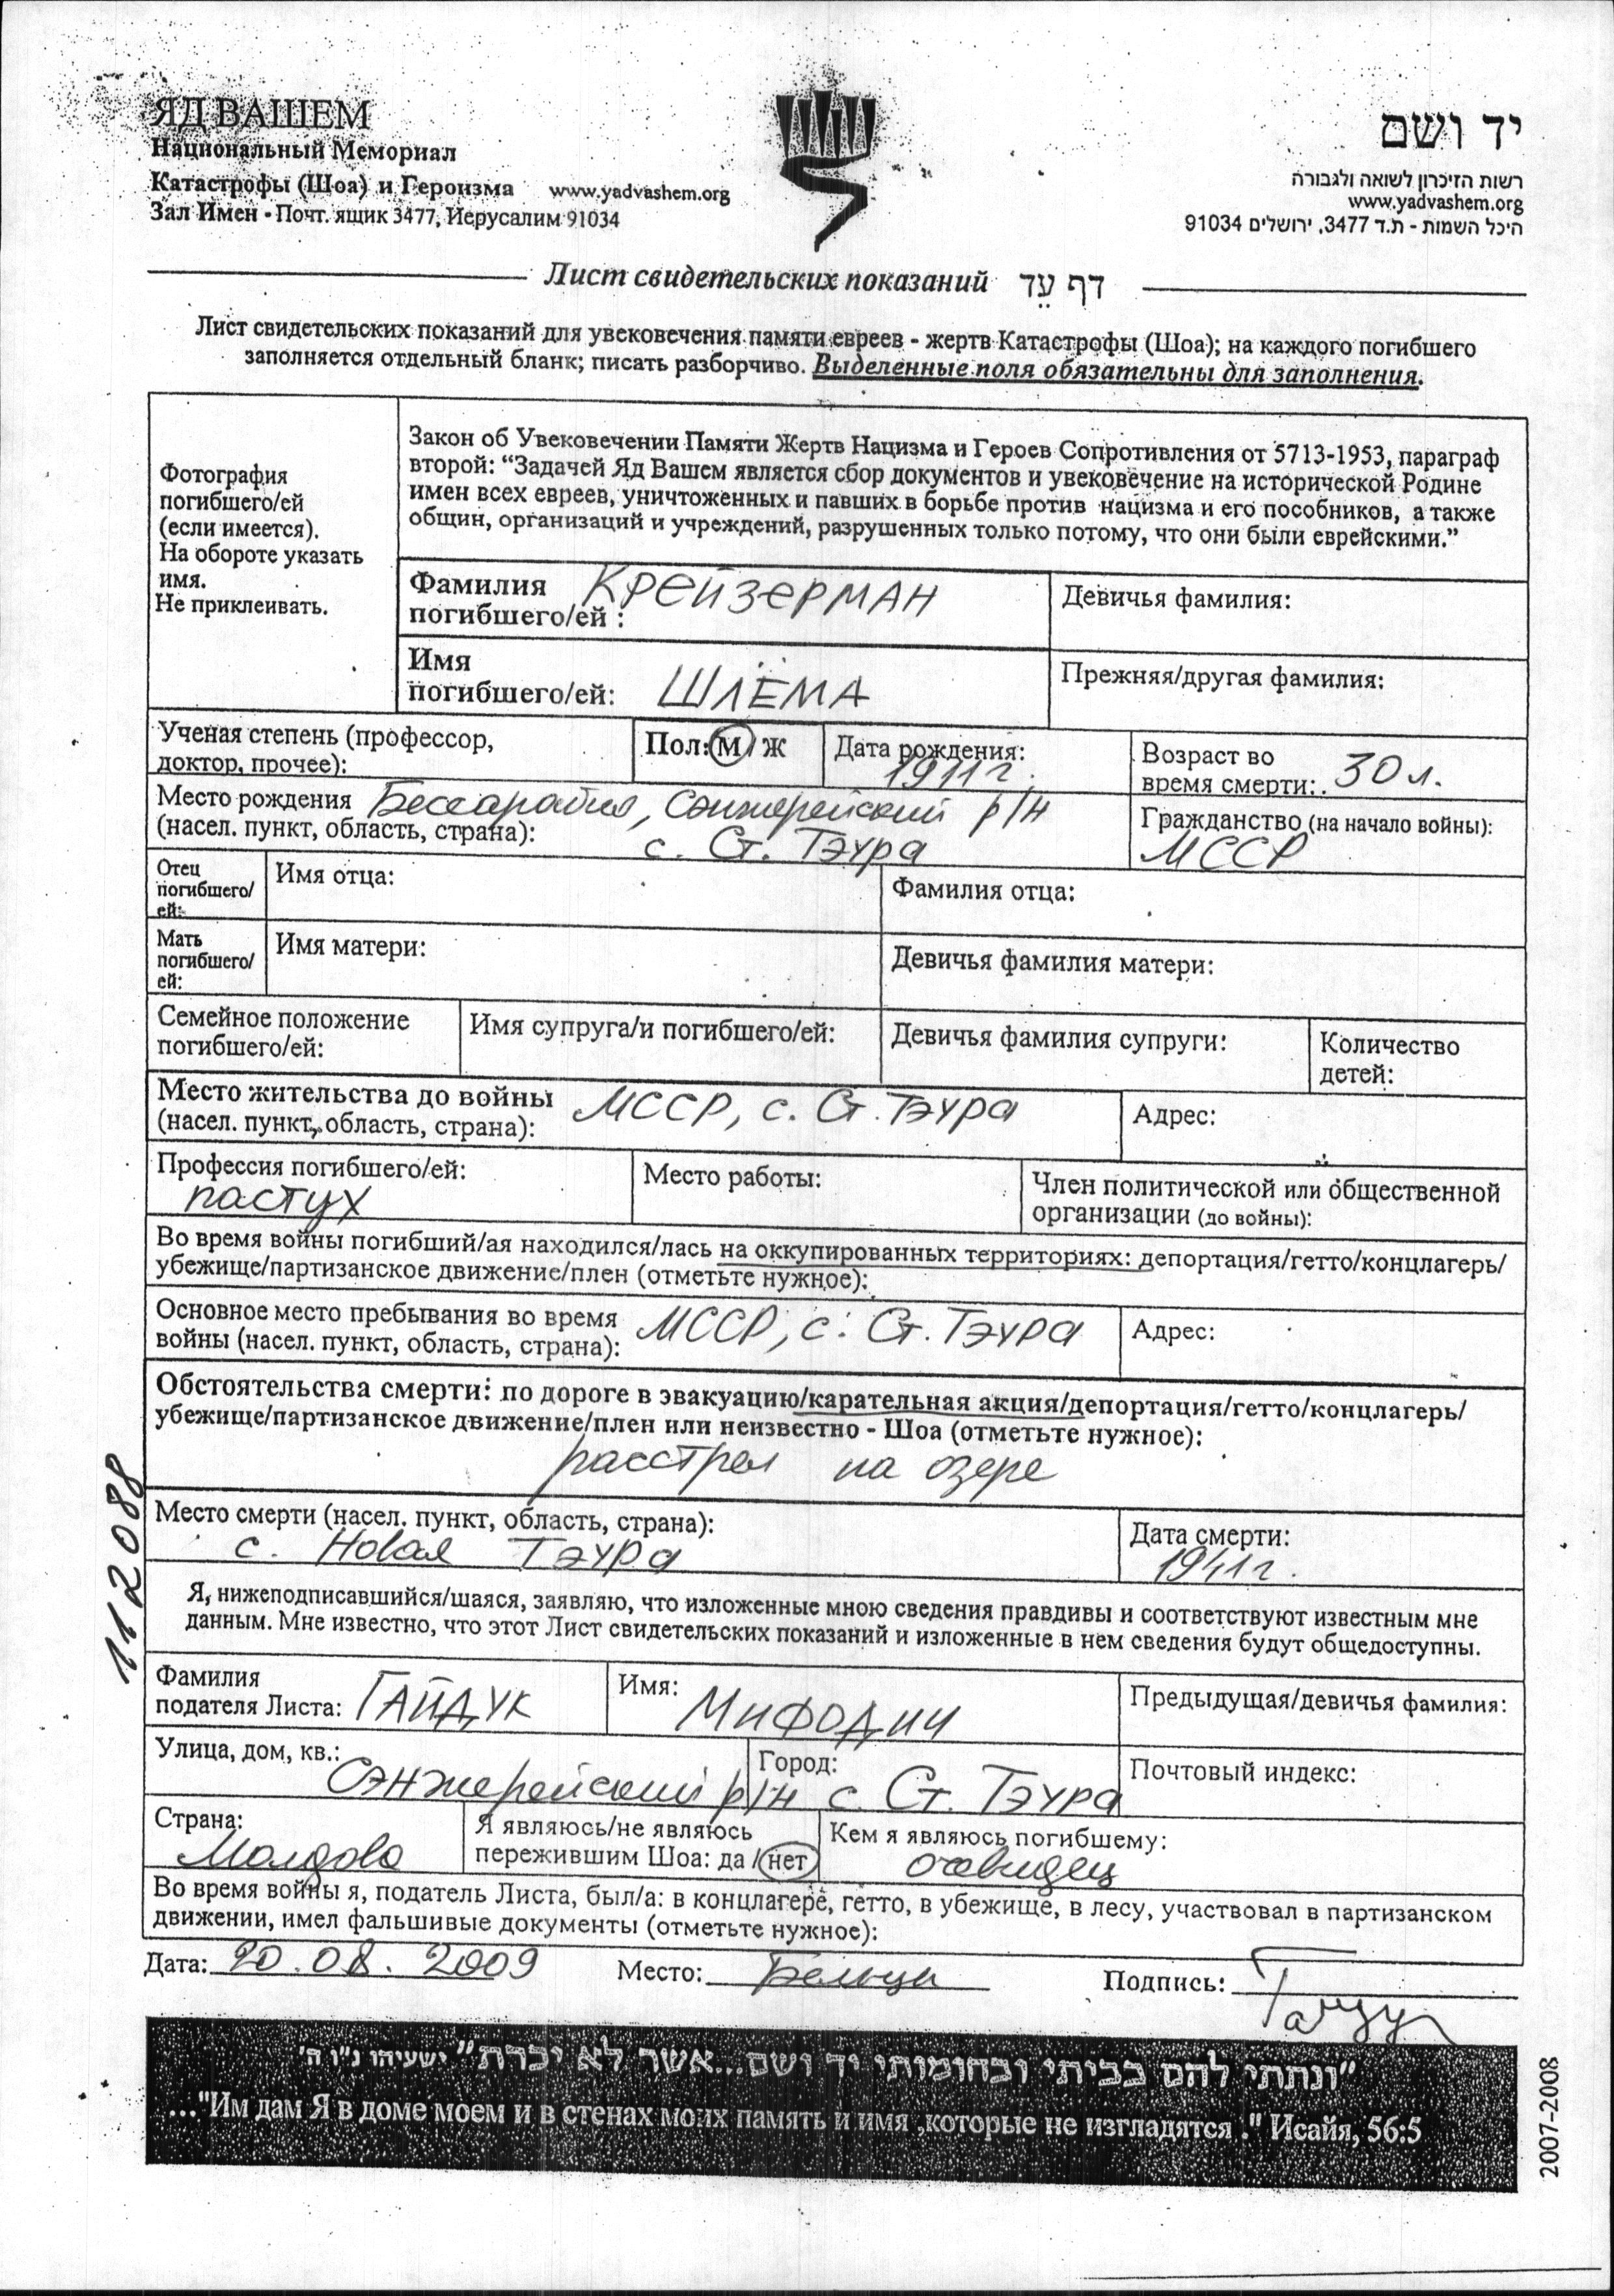 ЯД ВАШЕМ
Национальный Мемориал
Катастрофы (Шоа) и Героизма www.yadvashem.org
Зал Имен - Почт. ящик 3477, Иерусалим 91034
יד ושם
רשות הזיכרון לשואה ולגבורה
www.yadvashem.org
היכל השמות - ת.ד 3477, ירושלים 91034
Лист свидетельских показаний דף עֵד
Лист свидетельских показаний для увековечения памяти евреев - жертв Катастрофы (Шоа); на каждого погибшего
заполняется отдельный бланк; писать разборчиво. Выделенные поля обязательны для заполнения.
Фотография
погибшего/ей
(если имеется).
На обороте указать
имя.
Не приклеивать.
Закон об Увековечении Памяти Жертв Нацизма и Героев Сопротивления от 5713-1953, параграф
второй: “Задачей Яд Вашем является сбор документов и увековечение на исторической Родине
имен всех евреев, уничтоженных и павших в борьбе против нацизма и его пособников, а также
общин, организаций и учреждений, разрушенных только потому, что они были еврейскими.”
Фамилия
погибшего/ей : Крейзерман
Девичья фамилия:
Имя
погибшего/ей: Шлёма
Прежняя/другая фамилия:
Ученая степень (профессор,
доктор, прочее):
Пол: М / Ж
Дата рождения:
1911г.
Возраст во
время смерти: 30 л.
Место рождения Бессарабия, Сэнжерейский р/н
(насел. пункт, область, страна): с. Ст. Тэура
Гражданство (на начало войны):
МССР
Отец
погибшего/
ей:
Имя отца:
Фамилия отца:
Мать
погибшего/
ей:
Имя матери:
Девичья фамилия матери:
Семейное положение
погибшего/ей:
Имя супруга/и погибшего/ей:
Девичья фамилия супруги:
Количество
детей:
Место жительства до войны МССР, с. Ст. Тэура
(насел. пункт, область, страна):
Адрес:
Профессия погибшего/ей:
пастух
Место работы:
Член политической или общественной
организации (до войны):
Во время войны погибший/ая находился/лась на оккупированных территориях: депортация/гетто/концлагерь/
убежище/партизанское движение/плен (отметьте нужное):
Основное место пребывания во время МССР, с. Ст. Тэура
войны (насел. пункт, область, страна):
Адрес:
Обстоятельства смерти: по дороге в эвакуацию/карательная акция/депортация/гетто/концлагерь/
убежище/партизанское движение/плен или неизвестно - Шоа (отметьте нужное):
расстрел на озере
Место смерти (насел. пункт, область, страна):
с. Новая Тэура
Дата смерти:
1941г.
Я, нижеподписавшийся/шаяся, заявляю, что изложенные мною сведения правдивы и соответствуют известным мне
данным. Мне известно, что этот Лист свидетельских показаний и изложенные в нем сведения будут общедоступны.
Фамилия
подателя Листа: Гайдук
Имя: Мифодич
Предыдущая/девичья фамилия:
Улица, дом, кв.:
Сэнжерейский р/н
Город:
с. Ст. Тэура
Почтовый индекс:
Страна:
Молдова
Я являюсь/не являюсь
пережившим Шоа: да / нет
Кем я являюсь погибшему:
очевидец
Во время войны я, податель Листа, был/а: в концлагере, гетто, в убежище, в лесу, участвовал в партизанском
движении, имел фальшивые документы (отметьте нужное):
Дата: 20.08.2009 Место: Бельцы Подпись:
1112088
"ונתתי להם בביתי ובחומותי יד ושם...אשר לא יכרת" ישעיהו נ"ו ה'
..."Им дам Я в доме моем и в стенах моих память и имя ,которые не изгладятся ." Исайя, 56:5
2007-2008